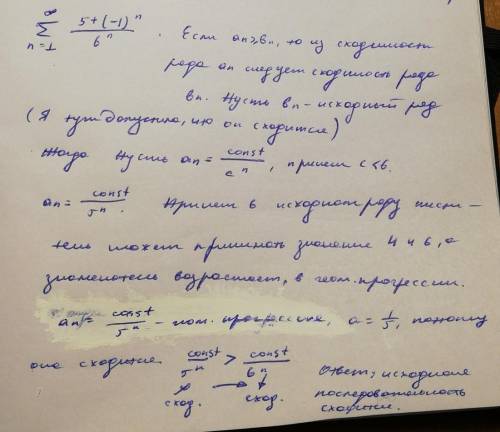 ∞
∑ (5+(-1)^n)/6^n . Если an ≥ bn, то из сходимости
n=1
ряда an следует сходимость ряда
bn. Пусть bn - исходный ряд
(Я тут допустила, что он сходится)
Тогда пусть an = const/c^n, причем c < 6.
an = const/5^n. Причем в исходном ряду числи-
тель может принимать значение 4 и 6, а
знаменатель возрастает, в геом. прогрессии.
an = const/5^n - геом. прогрессия, a = 1/5, поэтому
она сходится. const/5^n > const/6^n
сход. → сход.
Ответ: исходная
последовательность
сходится.